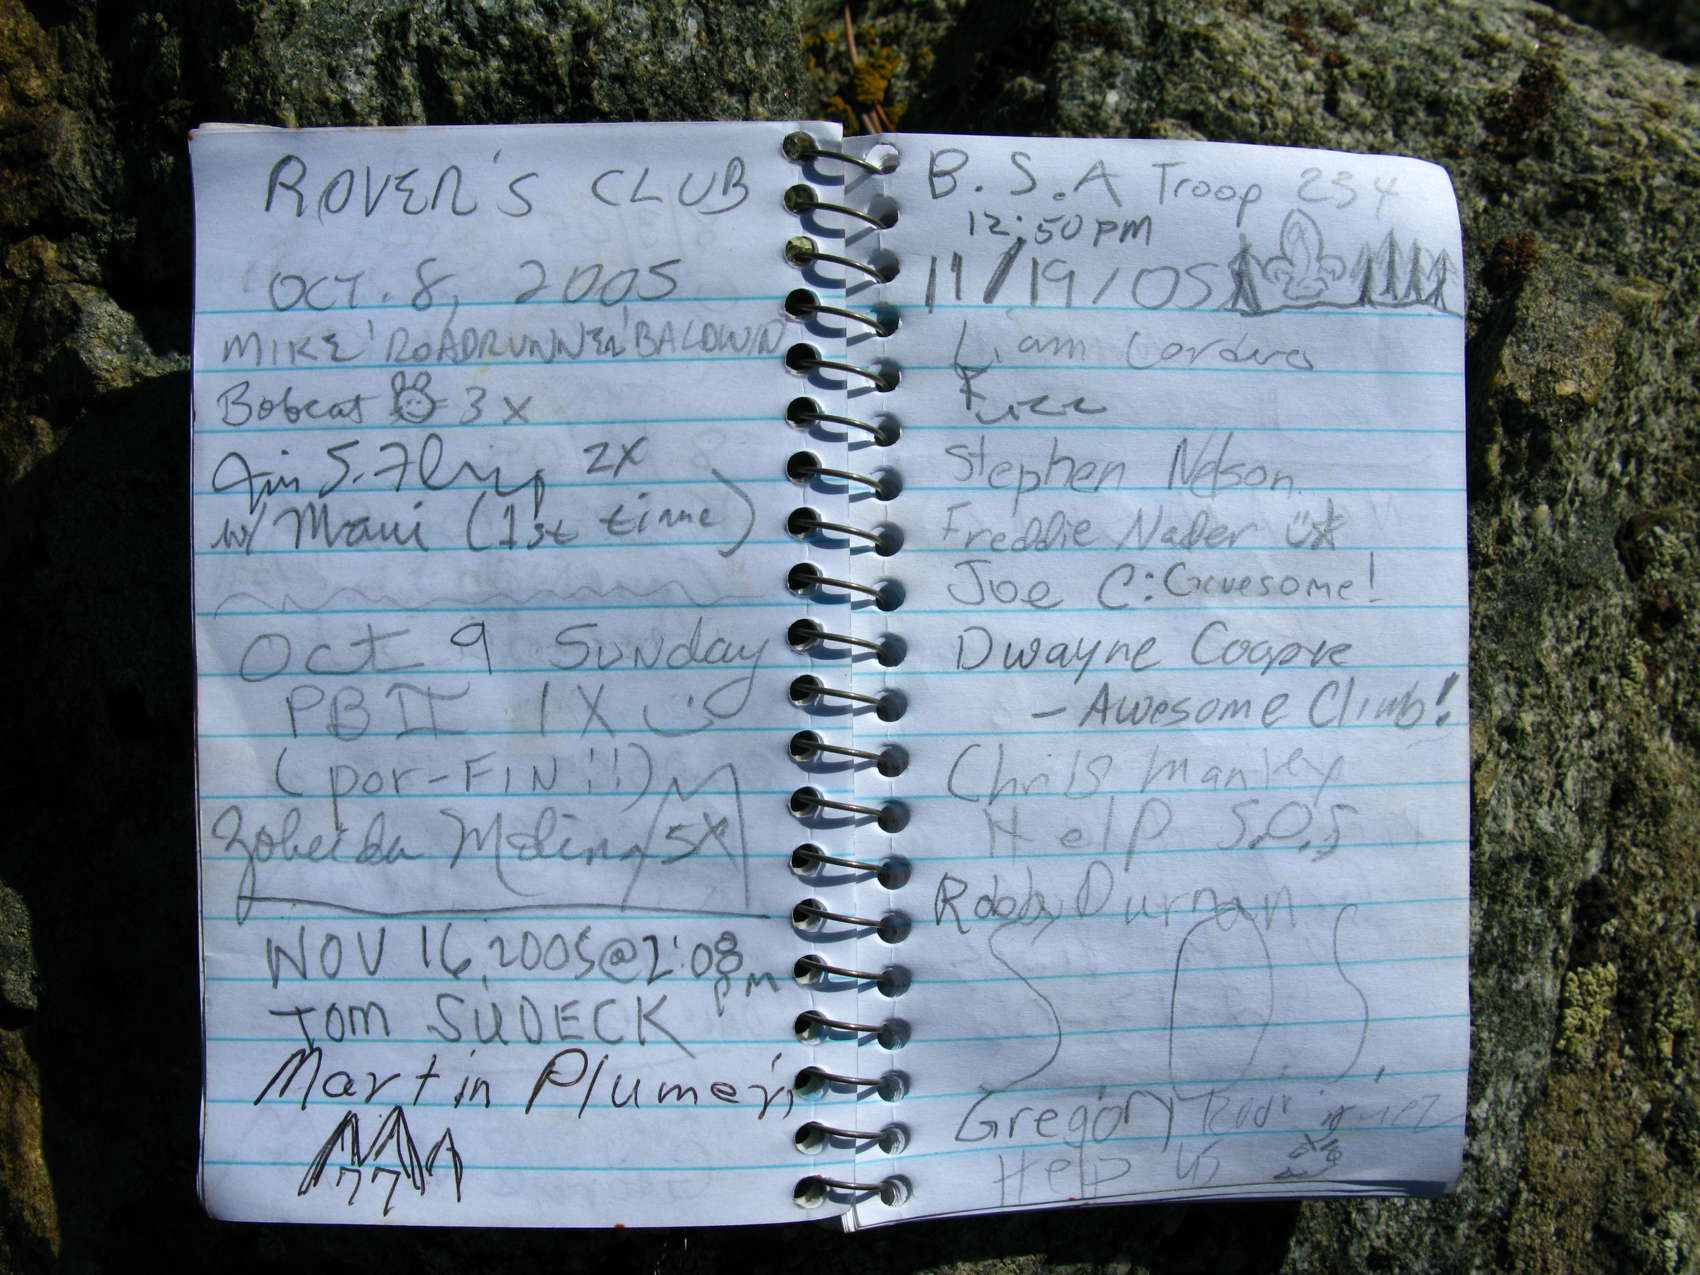 ROVER'S CLUB
OCT. 8, 2005
MIKE 'ROADRUNNER' BALDWIN
Bobcat 3x
Jim 2X
w/ Maui (1st time)
Oct 9 Sunday
PB II 1X
(por-FIN!!)
Zobeida Molina 5X
NOV 16, 2005@2:08 PM
TOM SUDECK
Martin Plumer
77
B.S.A Troop 234
12:50 PM
11/19/05
Liam
Fuzz
Stephen Nelson
Freddie Nader
Joe C: Gruesome!
Dwayne
- Awesome Climb!
Chris Manley
Help S.O.S
Robby Durnan
SOS
Gregory Rodriguez
Help us